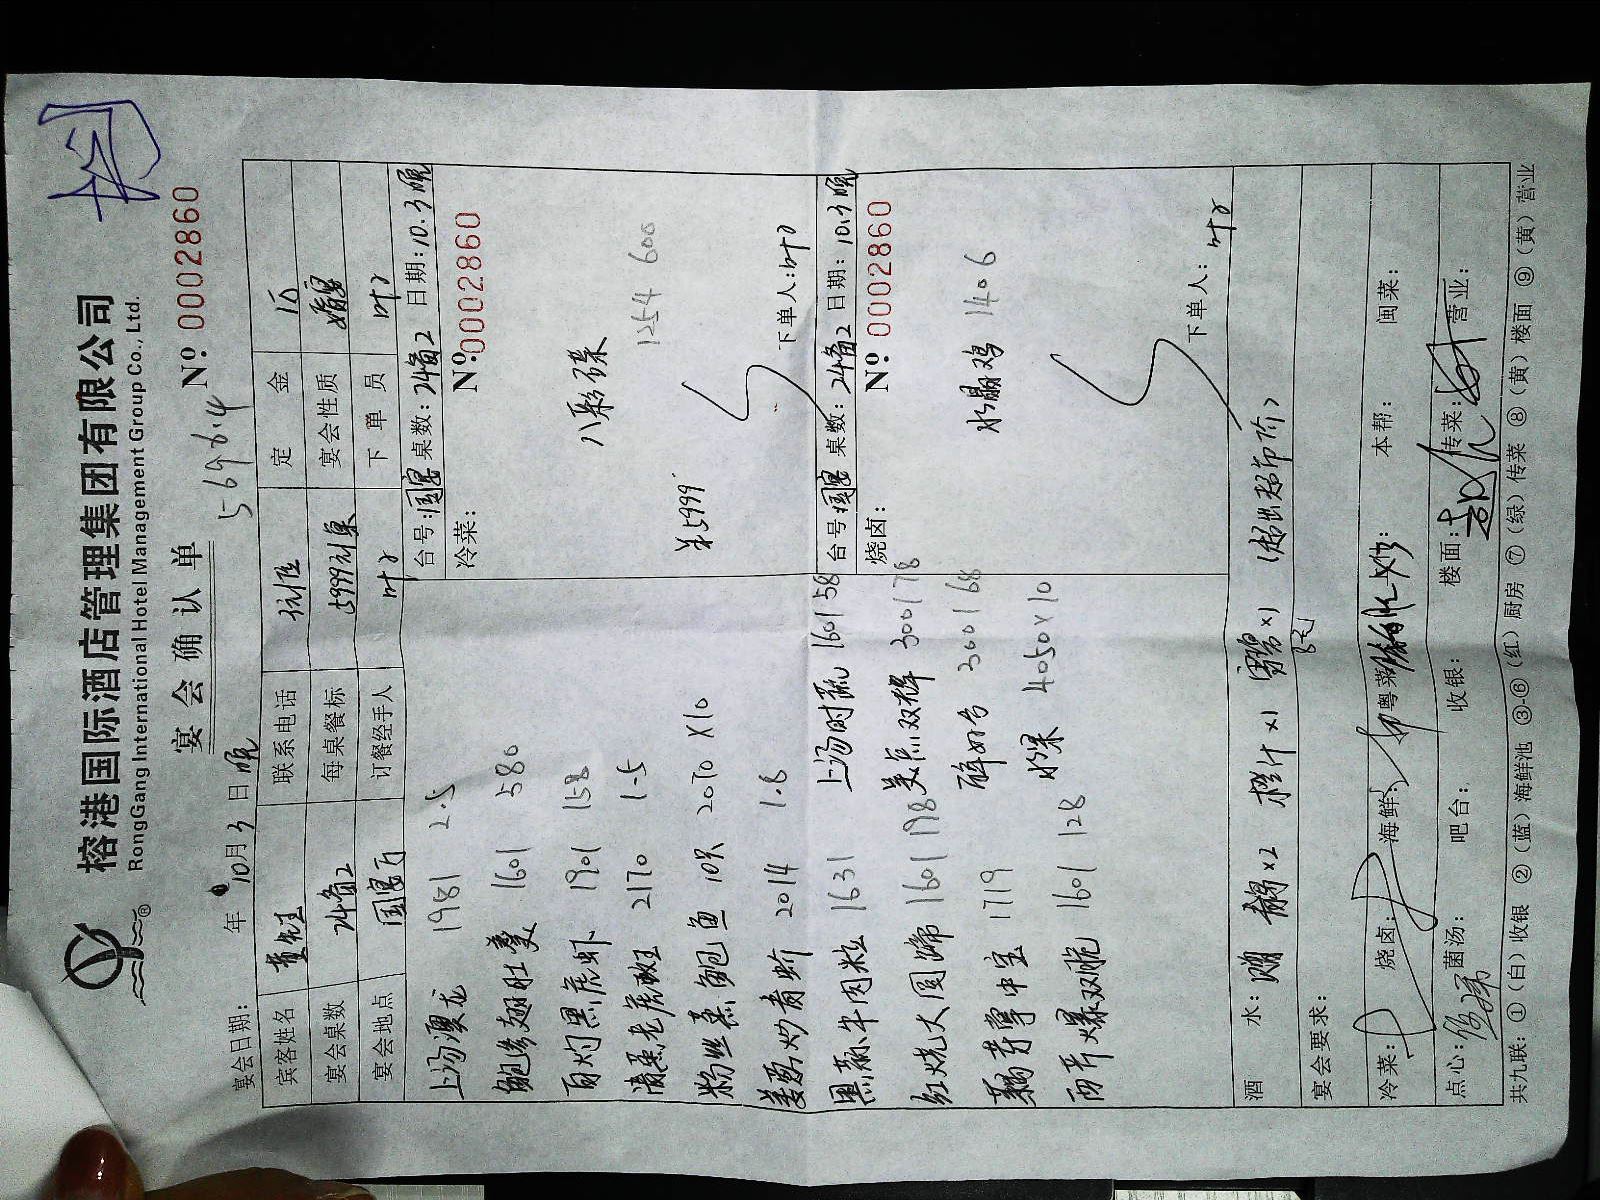 榕港国际酒店管理集团有限公司
RongGang International Hotel Management Group Co., Ltd.
宴会确认单
5696.4
Nº 0002860
宴会日期： 年 10月3日晚
宾客姓名 联系电话 定金
宴会桌数 24备2 每桌餐标 5999 宴会性质 婚宴
宴会地点 国宴 订餐经手人 叶 下单员 叶
台号：国宴 桌数：24备2 日期：10.3晚
冷菜： Nº 0002860
八彩碟 1254 600
下单人：叶
上汤澳龙 1981 2.5
鲍参翅肚羹 1601 580
白灼黑虎虾 1901 158
清蒸老虎斑 2170 1.5
粉丝蒸鲍鱼 10只 2070 X10
姜葱炒青蚧 2014 1.8
台号：国宴 桌数：24备2 日期：10.3晚
烧卤： Nº 0002860
水晶鸡 1406
下单人：叶
黑椒牛肉粒 1631
上汤时蔬 1601 58
红烧大圆蹄 1601 198
美点双辉 300178
1719
300168
两芹爆双脆 1601 128
水果 4050 X10
酒水： X2 橙汁X1 雪碧X1 （超出超市价）
宴会要求：
冷菜： 烧卤： 海鲜： 粤菜： 本帮： 闽菜：
点心： 菌汤： 吧台： 收银： 楼面： 传菜： 营业：
共九联：①（白）收银 ②（蓝）海鲜池 ③-⑥（红）厨房 ⑦（绿）传菜 ⑧（黄）楼面 ⑨（黄）营业